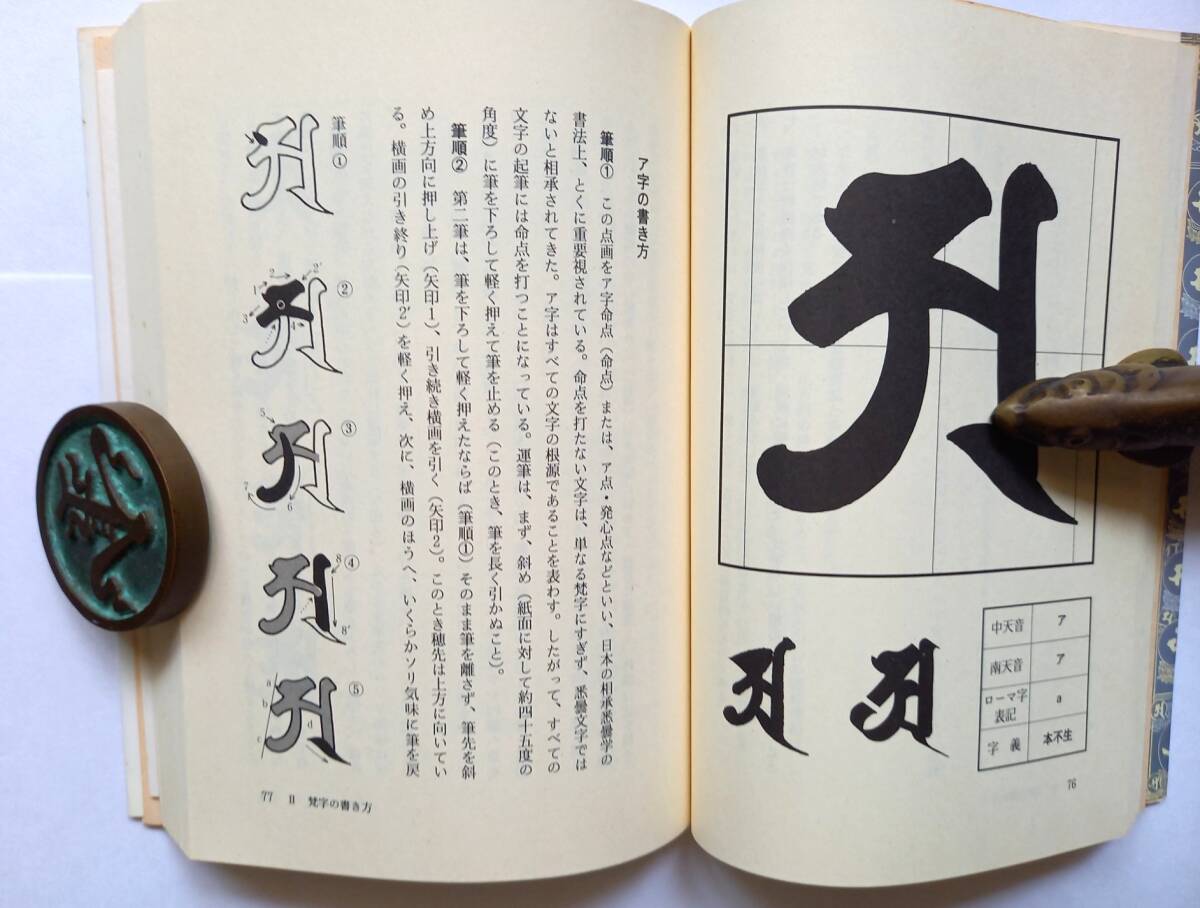 𑖀
中天音 ア
南天音 ア
ローマ字表記 a
字義 本不生
76
ア字の書き方
筆順① この点画をア字命点(命点)または、ア点・発心点などといい、日本の相承悉曇学の
書法上、とくに重要視されている。命点を打たない文字は、単なる梵字にすぎず、悉曇文字では
ないと相承されてきた。ア字はすべての文字の根源であることを表わす。したがって、すべての
文字の起筆には命点を打つことになっている。運筆は、まず、斜め(紙面に対して約四十五度の
角度)に筆を下ろして軽く押えて筆を止める(このとき、筆を長く引かぬこと)。
筆順② 第二筆は、筆を下ろして軽く押えたならば(筆順①)そのまま筆を離さず、筆先を斜
め上方向に押し上げ(矢印1)、引き続き横画を引く(矢印2)。このとき穂先は上方に向いてい
る。横画の引き終り(矢印2′)を軽く押え、次に、横画のほうへ、いくらかソリ気味に筆を戻
筆順①
②
1 2 2′ 3 4
③
5 6 7
④
8 8′
⑤
a b c d
77 Ⅱ 梵字の書き方